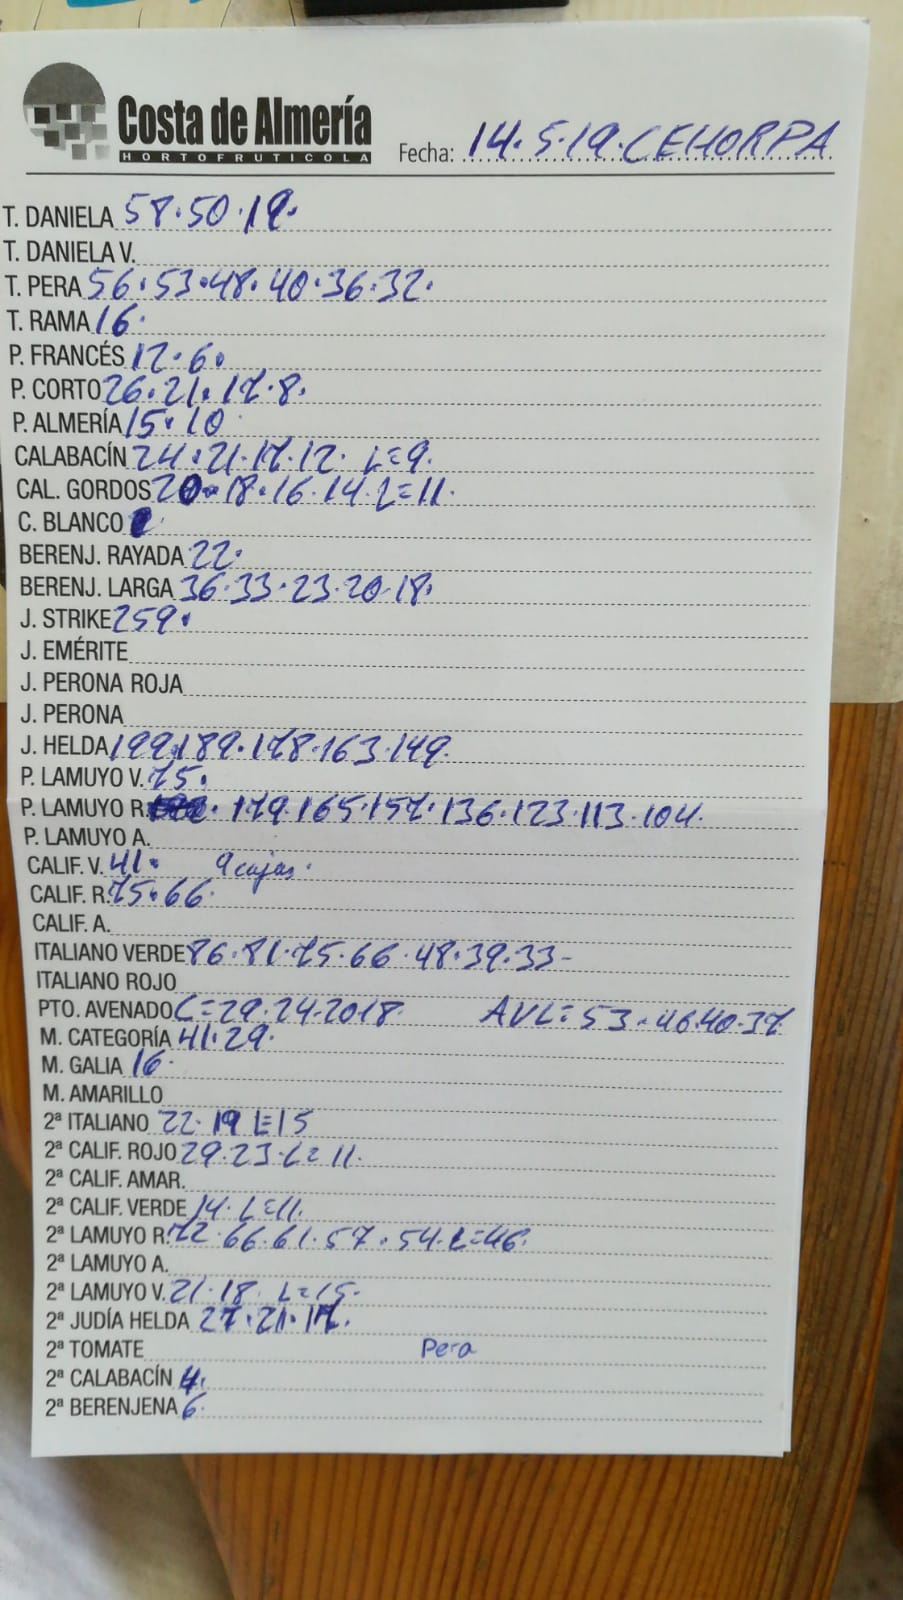 Costa de Almería
HORTOFRUTICOLA
Fecha: 14.5.19. CEHORPA
T. DANIELA 58.50.19.
T. DANIELA V.
T. PERA 56.53.48.40.36.32.
T. RAMA 16.
P. FRANCÉS 12.6.
P. CORTO 26.21.17.8.
P. ALMERÍA 15.10
CALABACÍN 24.21.17.12. L=9.
CAL. GORDOS 20.18.16.14.L=11.
C. BLANCO
BERENJ. RAYADA 22.
BERENJ. LARGA 36.33.23.20.18.
J. STRIKE 259.
J. EMÉRITE
J. PERONA ROJA
J. PERONA
J. HELDA 199.189.178.163.149.
P. LAMUYO V. 75.
P. LAMUYO R. 179.165.157.136.123.113.104.
P. LAMUYO A.
CALIF. V. 41. 9 cajas.
CALIF. R. 75.66.
CALIF. A.
ITALIANO VERDE 86.81.75.66.48.39.33-
ITALIANO ROJO
PTO. AVENADO C=29.24.20.18. AVL=53.46.40.37
M. CATEGORÍA 41.29.
M. GALIA 16.
M. AMARILLO
2ª ITALIANO 22.19 L=15
2ª CALIF. ROJO 29.23.L=11.
2ª CALIF. AMAR.
2ª CALIF. VERDE 14.L=11.
2ª LAMUYO R. 72.66.61.57.54.L=46.
2ª LAMUYO A.
2ª LAMUYO V. 21.18. L=15.
2ª JUDÍA HELDA 27.21.17.
2ª TOMATE Pera
2ª CALABACÍN 4.
2ª BERENJENA 6.